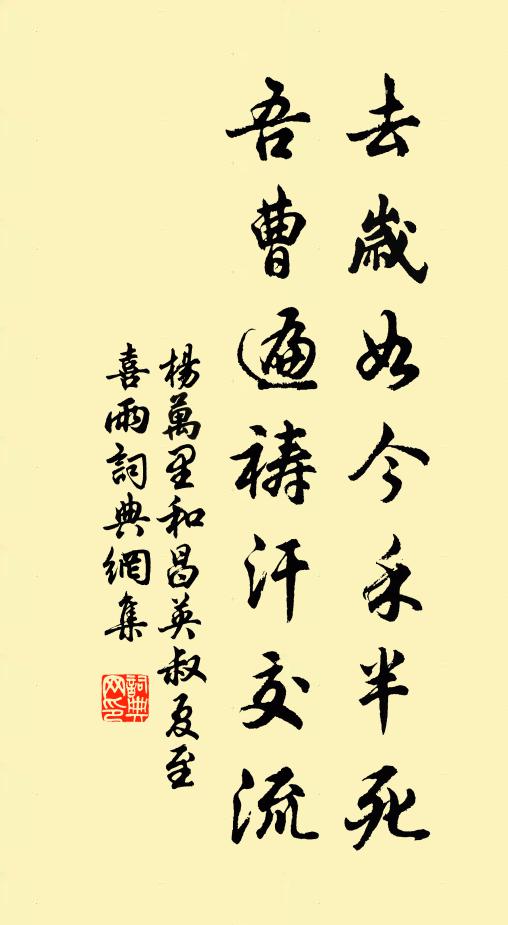 去歲如今禾半死
吾曹遍禱汗交流
楊萬里和昌英叔夏至
喜雨詞典網集
詞典
网印